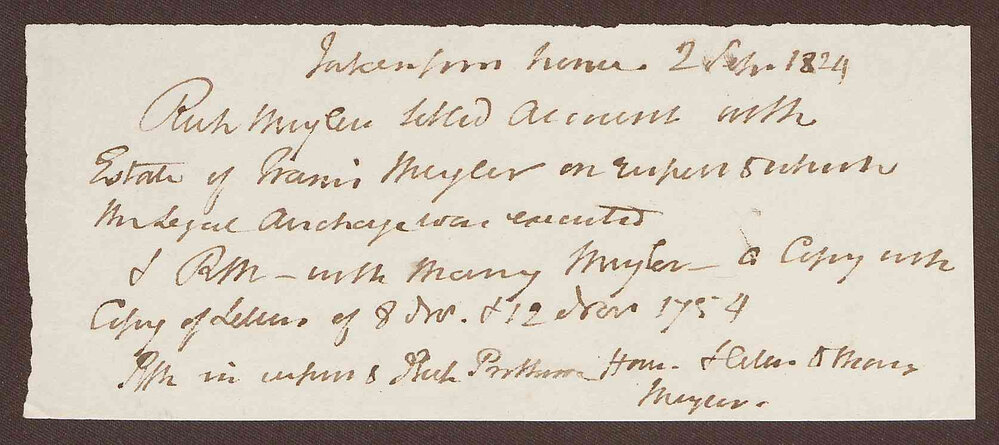 Taken from home. 2 Sep. 1824
Rich Meyler settled Account with
Estate of Francis Meyler on respect to which
the Legal discharge was executed
& RM – with Mary Meyler – a Copy with
Copy of Letters of 8 Nov. & 12 Nov 1754
RM in respect to Rich Prothroe &
Meyler.